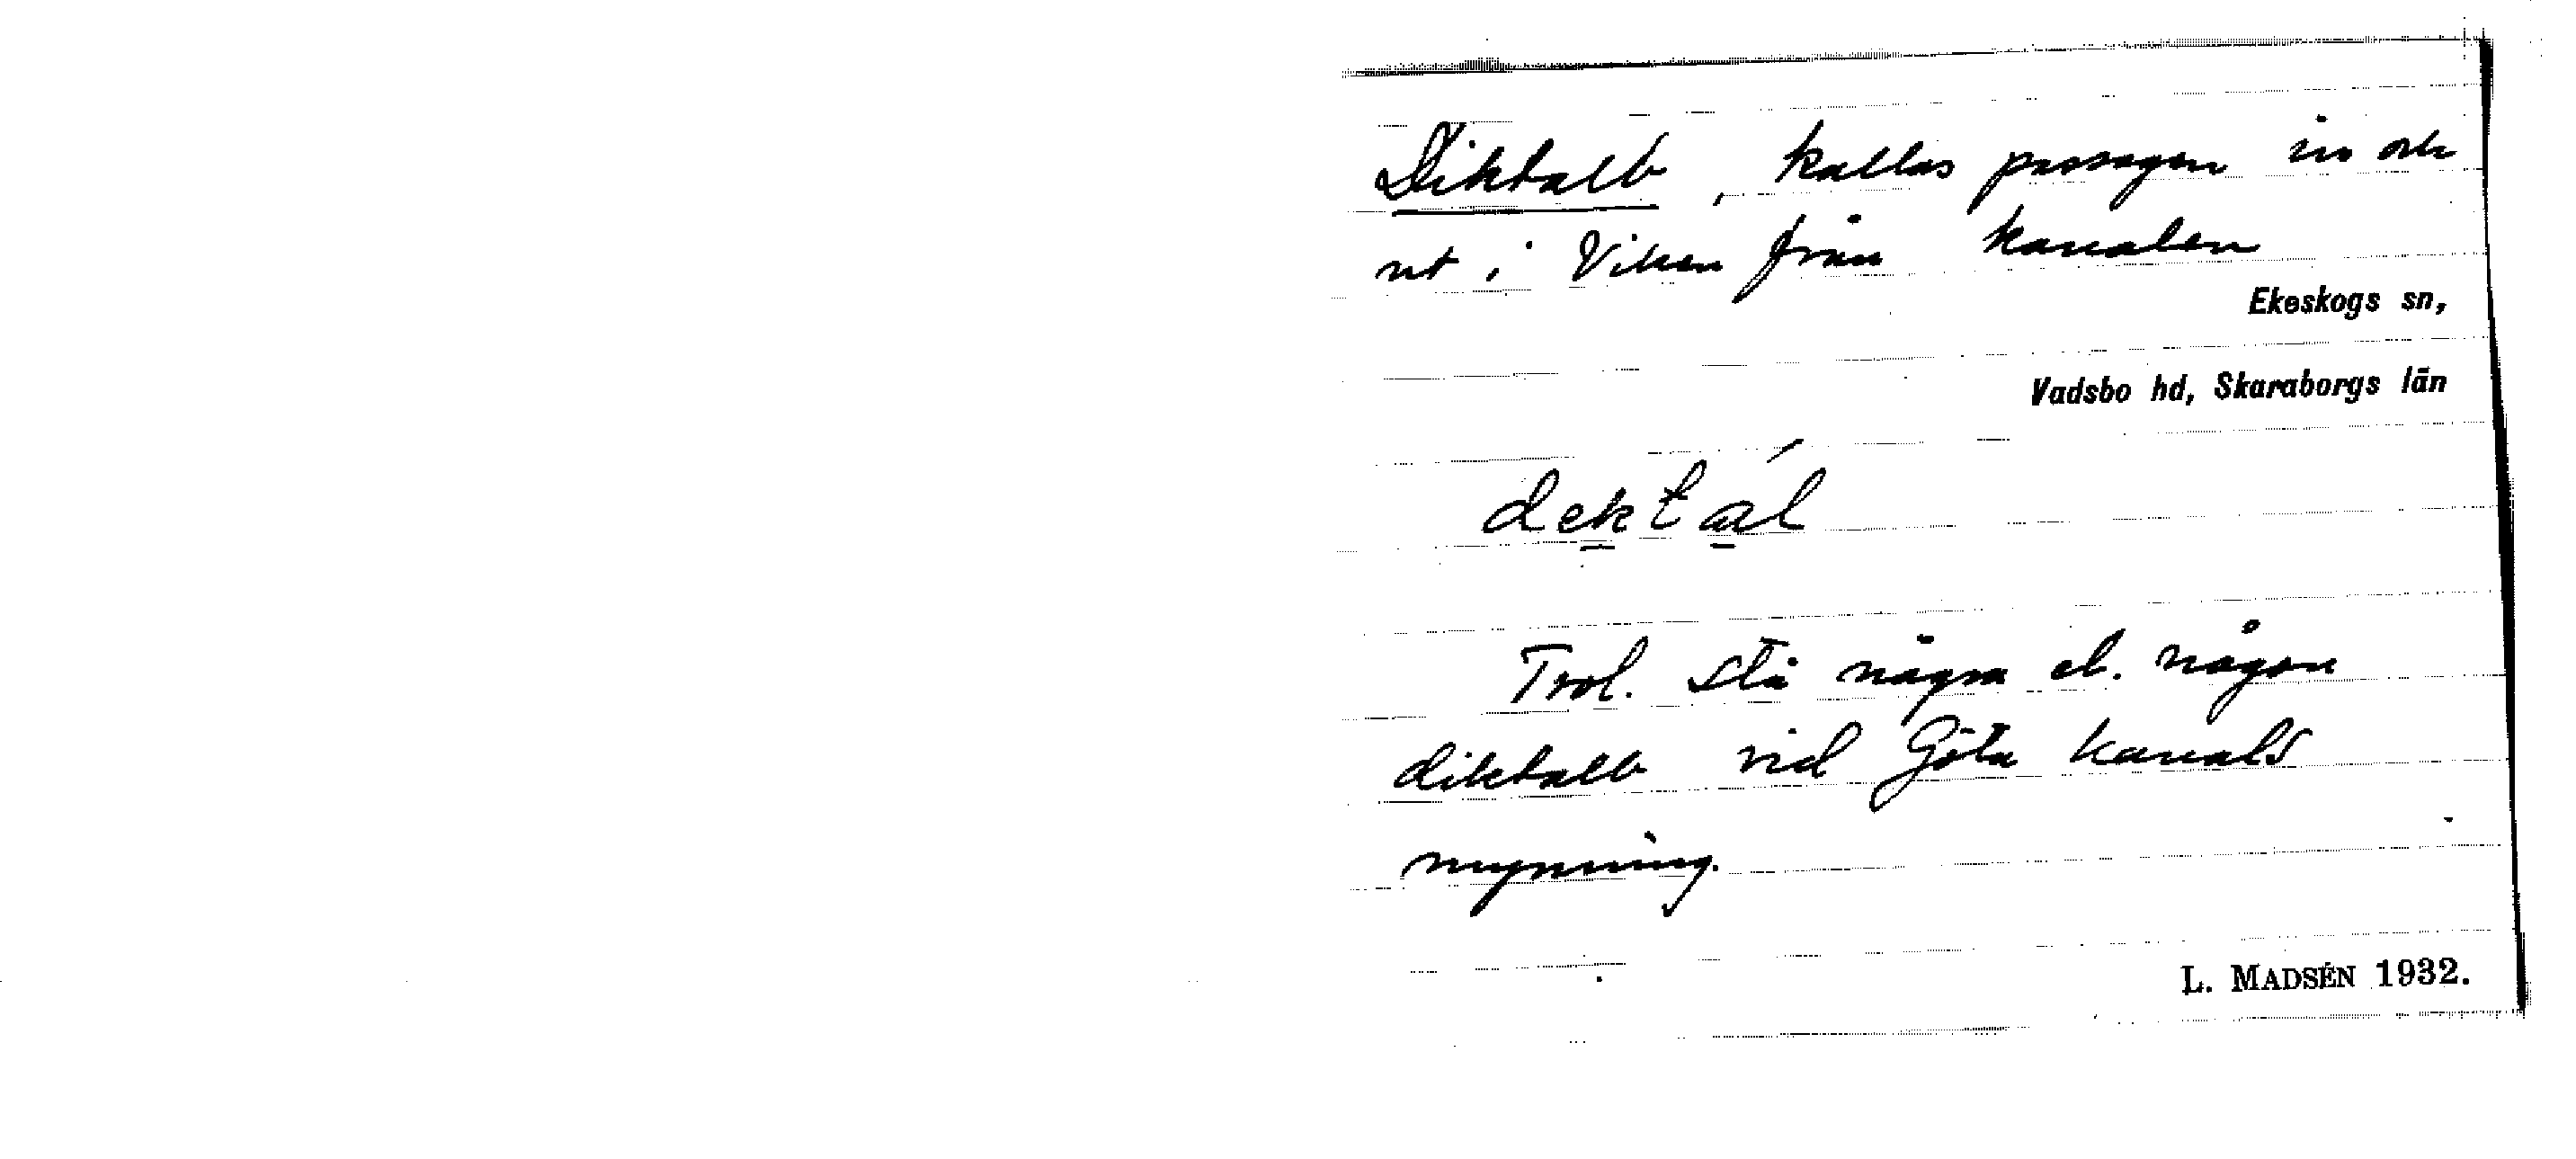 Diktalb, kallas passagen in och
ut i Viken från kanalen
Ekeskogs sn,
Vadsbo hd, Skaraborgs län
dektál
Trol. stå några el. någon
diktalb vid Göta kanals
mynning.
L. MADSÉN 1932.